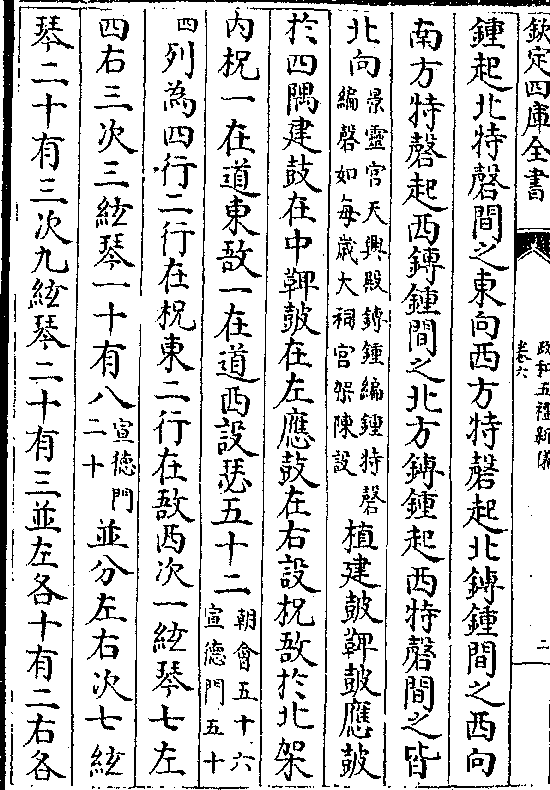 欽定四庫全書
政和五禮新儀
卷六
二
鍾起北特磬間之東向西方特磬起北鎛鍾間之西向
南方特磬起西鎛鍾間之北方鎛鍾起西特磬間之皆
北向景靈宮天興殿鎛鍾編鍾特磬編磬如每歲大祠宮架陳設植建鼓鞞鼓應鼓
於四隅建鼓在中鞞鼓在左應鼓在右設柷敔於北架
内柷一在道東敔一在道西設瑟五十二朝會五十六宣德門五十
四列為四行二行在柷東二行在敔西次一絃琴七左
四右三次三絃琴一十有八宣德門二十並分左右次七絃
琴二十有三次九絃琴二十有三並左各十有二右各